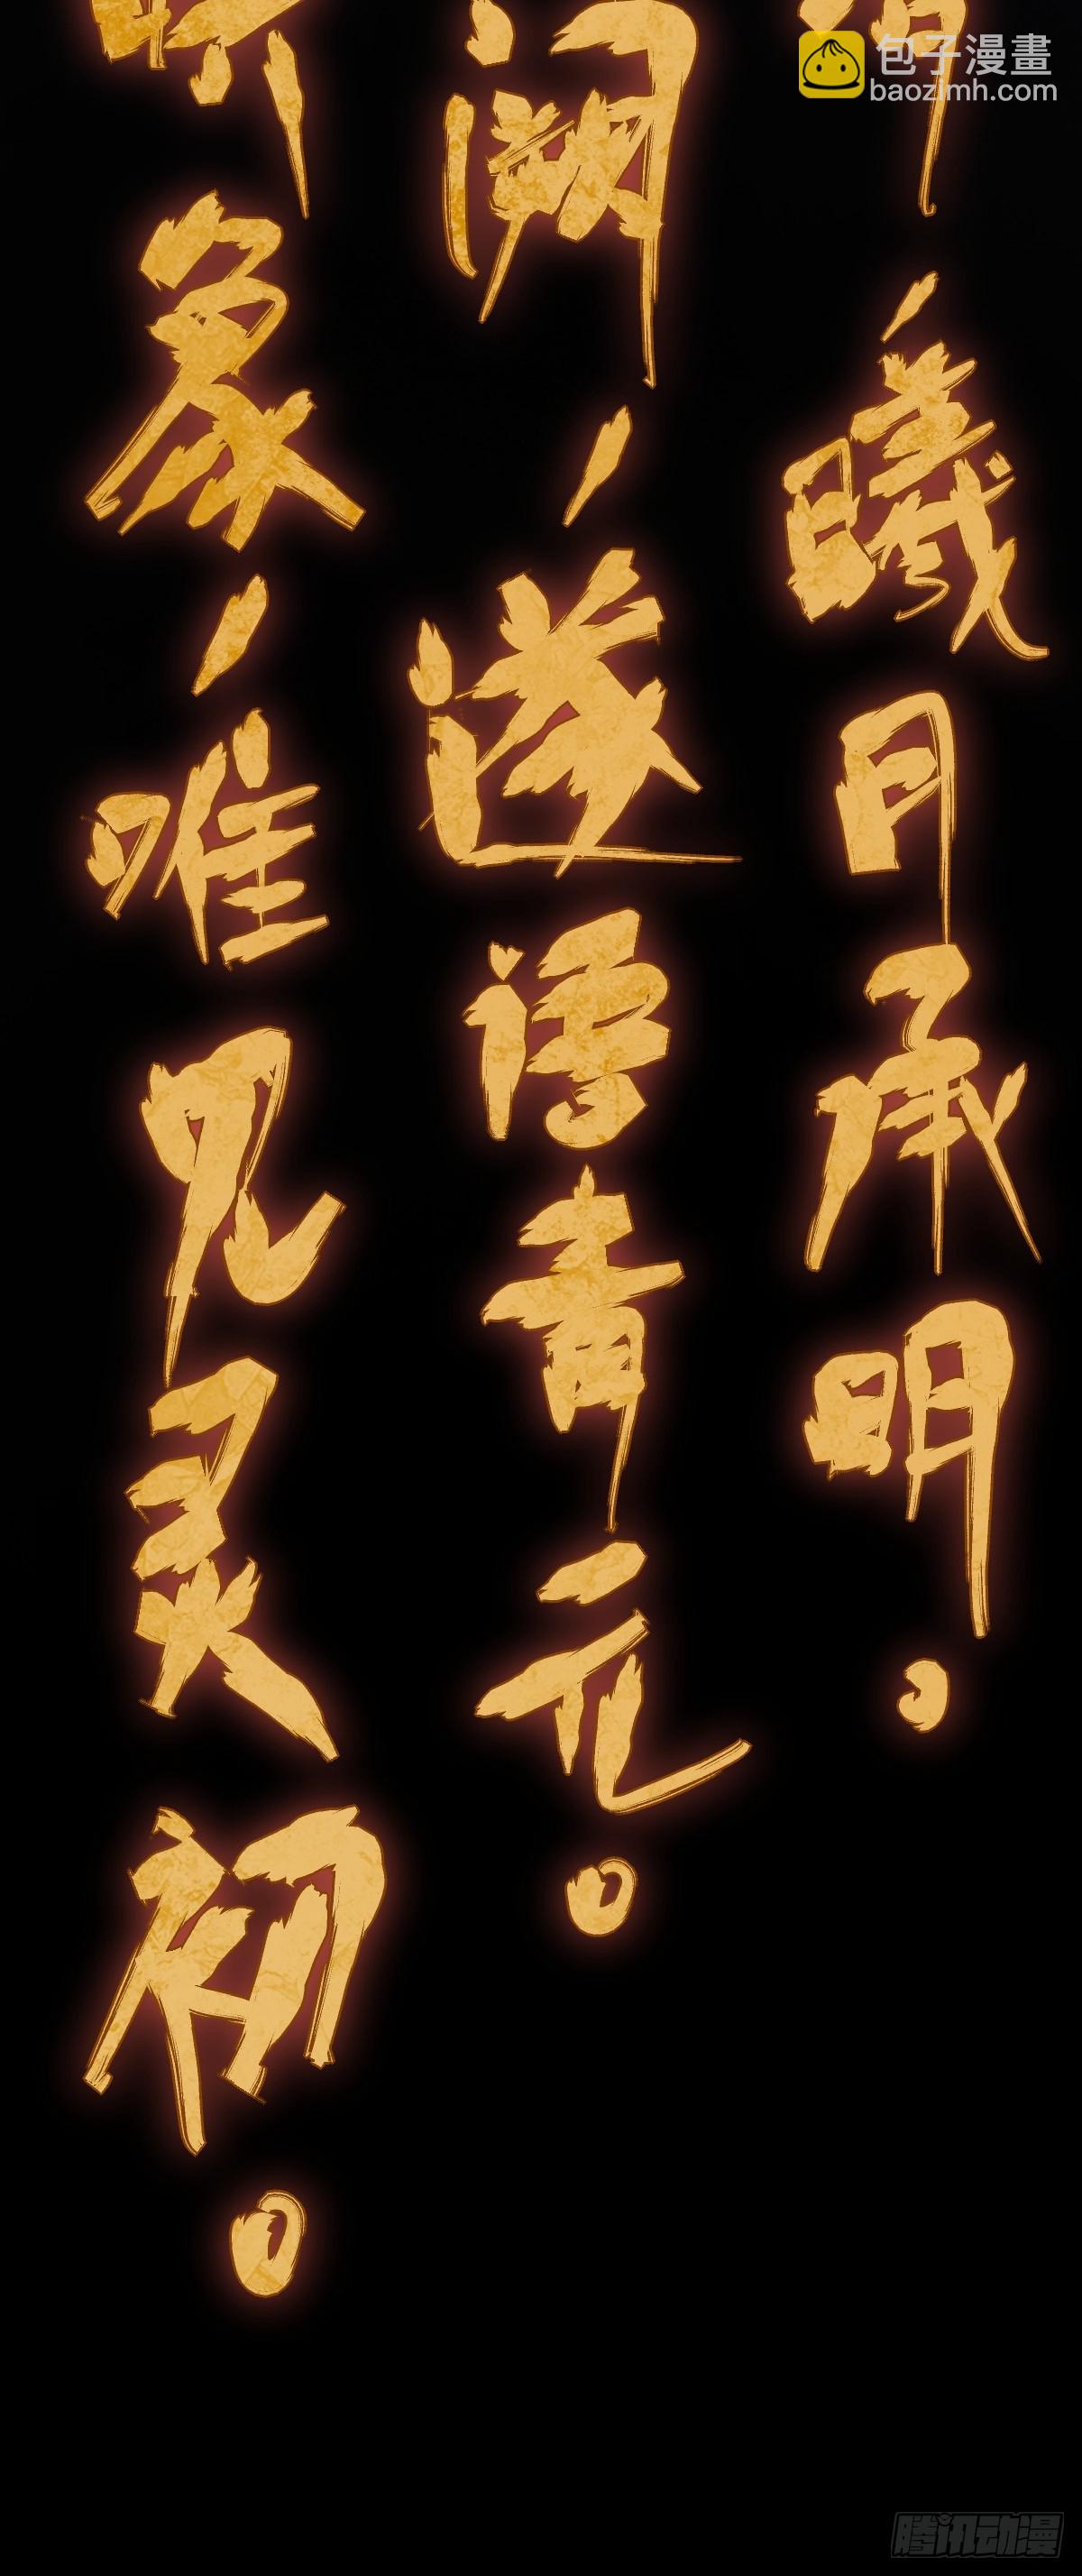 包子漫畫
baozimh.com
，曦月承明。
阙，遂语青元。
象，唯见灵初。
腾讯动漫